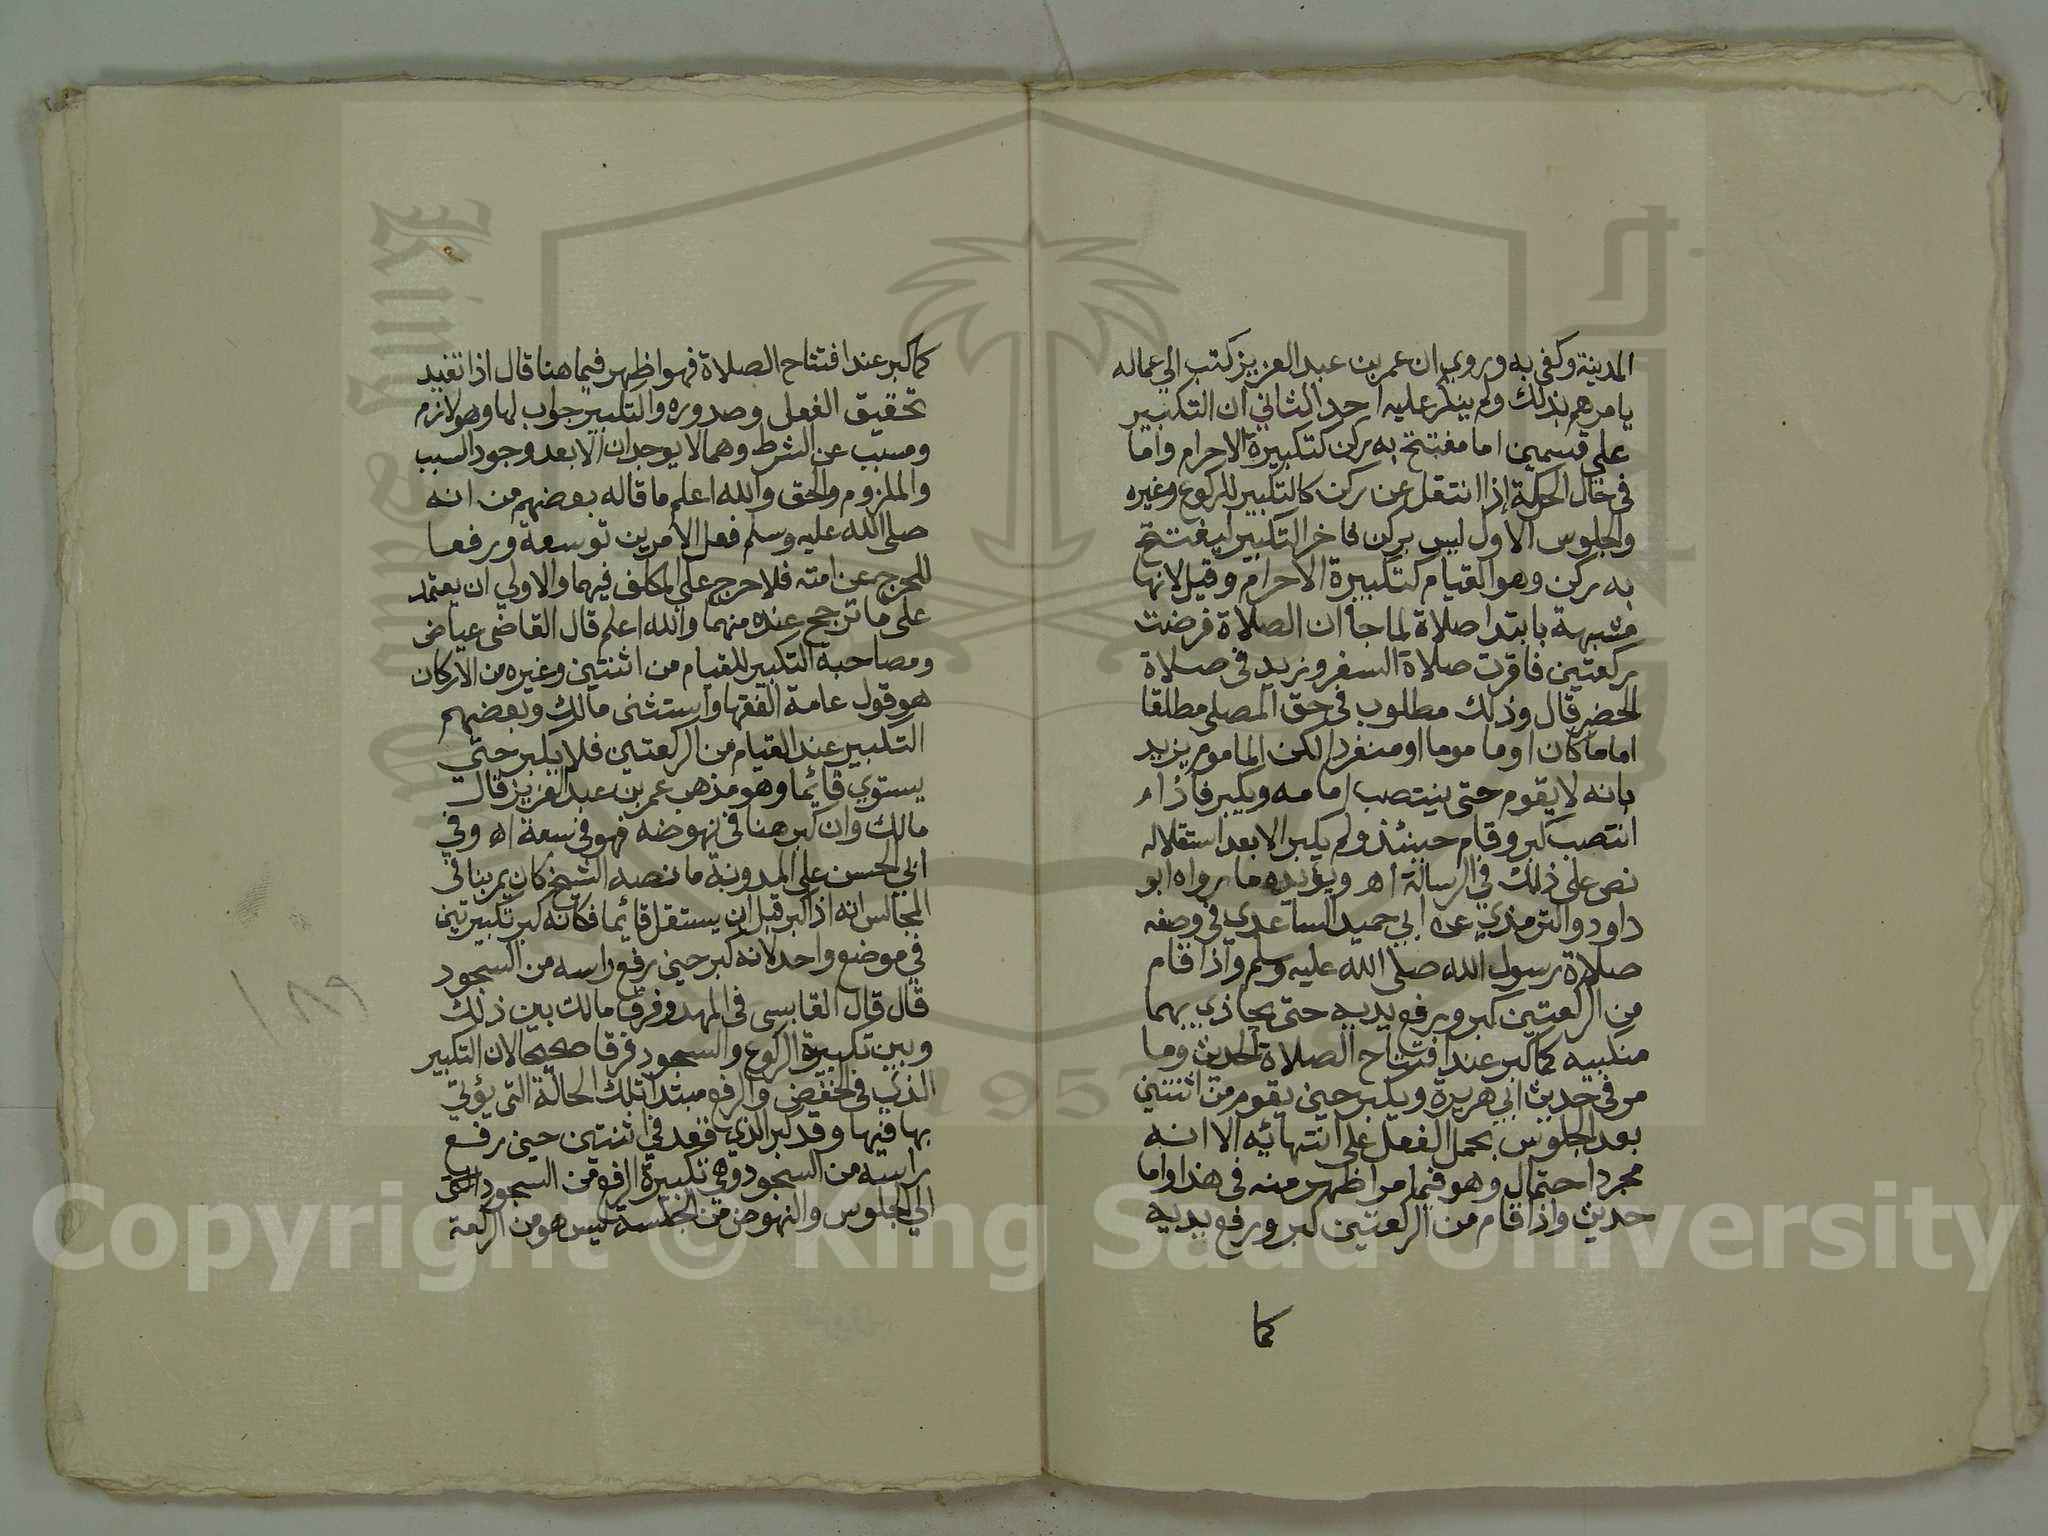 المدينة وكفي به وروي ان عمر بن عبد العزيز كتب الي عماله
يامرهم بذلك ولم ينكر عليه احد الثاني ان التكبير
علي قسمين اما مفتتح به ركن كتكبيرة الاحرام واما
في حال الحركة إذا انتقل عن ركن كالتكبير للركوع وغيره
والجلوس الاول ليس بركن فاخر التكبير ليفتتح
به ركن وهو القيام كتكبيرة الاحرام وقيل لانها
مشبهة بابتدا صلاة لما جا ان الصلاة فرضت
ركعتين فاقرت صلاة السفر وزيد في صلاة
الحضر قال وذلك مطلوب في حق المصلي مطلقا
اماما كان او ماموما او منفردا لكن الماموم يزيد
بانه لا يقوم حتى ينتصب امامه ويكبر فاذا
انتصب كبر وقام حينئذ ولم يكبر الا بعد استقلاله
نص على ذلك في الرسالة اه ويؤيده ما رواه ابو
داود والترمذي عن ابي حميد الساعدي في وصفه
صلاة رسول الله صلى الله عليه وسلم واذا قام
من الركعتين كبر ورفع يديه حتى يحاذي بهما
منكبيه كما كبر عند افتتاح الصلاة الحديث وما
مر في حديث ابي هريرة ويكبر حين يقوم من اثنتين
بعد الجلوس يحمل الفعل على انتهائه الا انه
مجرد احتمال وهو فيما مر اظهر منه في هذا واما
حديث واذا قام من الركعتين كبر ورفع يديه
كما
كما كبر عند افتتاح الصلاة فهو اظهر فيما هنا قال اذا تفيد
تحقيق الفعل وصدوره والتكبير جواب لها وهو لازم
ومسبب عن الشرط وهما لا يوجدان الا بعد وجود السبب
والملزوم والحق والله اعلم ما قاله بعضهم من انه
صلى الله عليه وسلم فعل الامرين توسعة ورفعا
للحرج عن امته فلا حرج علي المكلف فيهما والاولي ان يعتمد
على ما ترجح عنده منهما والله اعلم قال القاضي عياض
ومصاحبة التكبير للقيام من اثنتين وغيره من الاركان
هو قول عامة الفقها واستثنى مالك وبعضهم
التكبير عند القيام من الركعتين فلا يكبر حتي
يستوي قائما وهو مذهب عمر بن عبد العزيز قال
مالك وان كبر هنا في نهوضه فهو في سعة اه وفي
ابي الحسن علي المدونة ما نصه الشيخ كان يمر بنا في
المجالس انه اذا كبر قبل ان يستقل قائما فكانه كبر تكبيرتين
في موضع واحد لانه كبر حين رفع راسه من السجود
قال قال القابسي في الممهد وفرق مالك بين ذلك
وبين تكبيرة الركوع والسجود فرقا صحيحا لان التكبير
الذي في الخفض والرفع مبتدا تلك الحالة التي يؤتي
بها فيها وقد كبر الذي قعد في اثنتين حين رفع
راسه من السجود وهي تكبيرة الرفع من السجود
الي الجلوس والنهوض من الجلسة ليس هو من الركعة